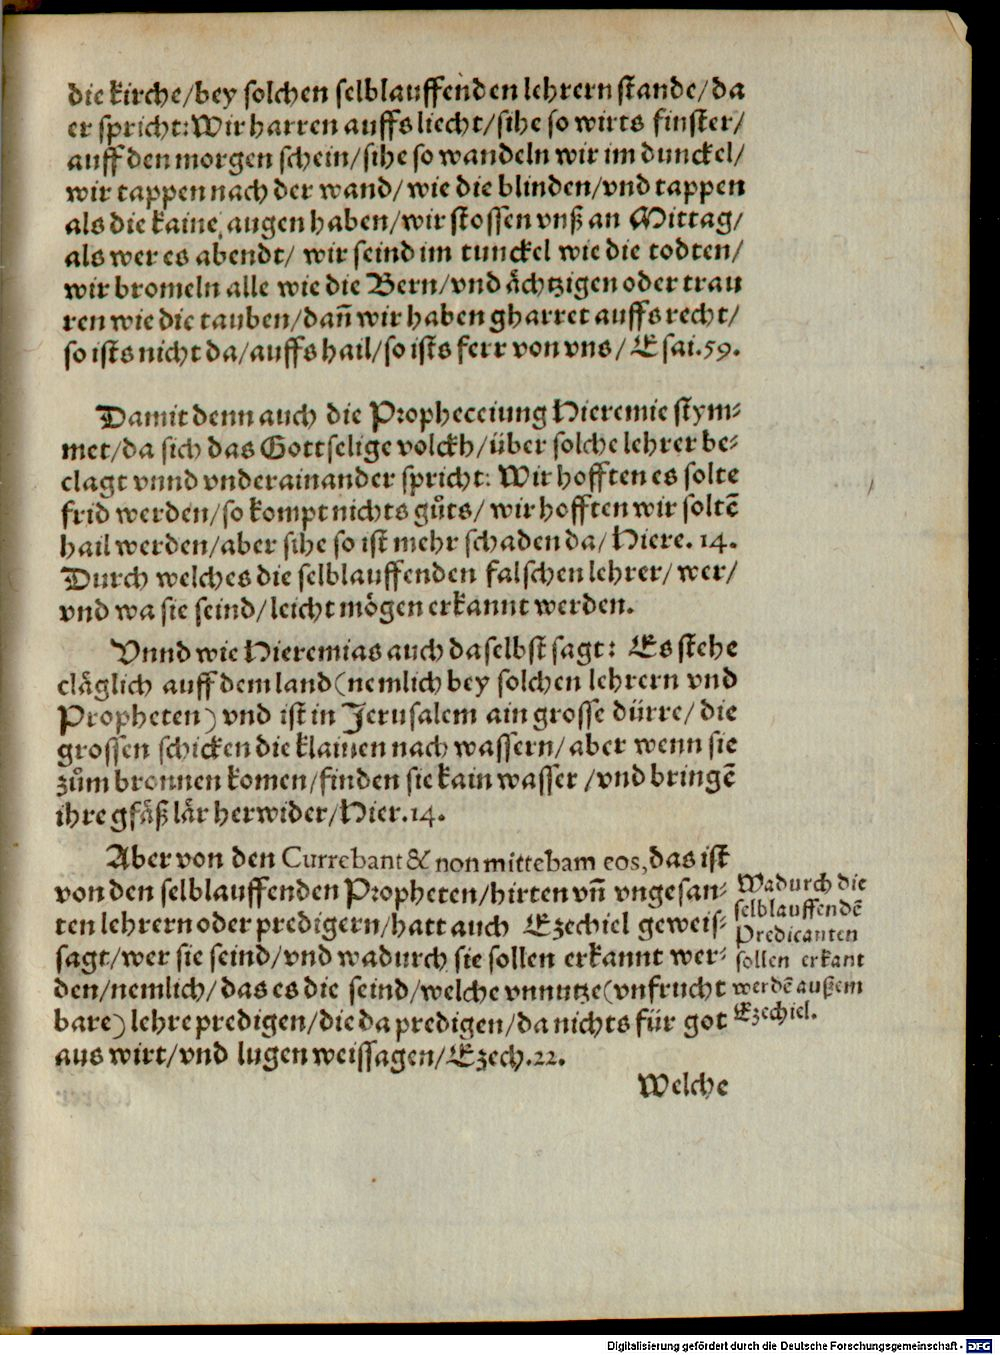 die kirche/bey solchen selblauffenden lehrern stande/da
er spricht: Wir harren auffs liecht/sihe so wirts finster/
auff den morgen schein/sihe so wandeln wir im dunckel/
wir tappen nach der wand/wie die blinden/vnd tappen
als die kaine augen haben/wir stossen vnß an Mittag/
als wer es abendt/ wir seind im tunckel wie die todten/
wir bromeln alle wie die Bern/vnd ächtzigen oder trau
ren wie die tauben/dañ wir haben gharret auffs recht/
so ists nicht da/auffs hail/so ists ferr von vns/ Esai.59.
Damit denn auch die Propheceiung Hieremie stym⸗
met/da sich das Gottselige volckh/über solche lehrer be⸗
clagt vnnd vnderainander spricht: Wir hofften es solte
frid werden/so kompt nichts gůts/ wir hofften wir soltē
hail werden/aber sihe so ist mehr schaden da/Hiere. 14.
Durch welches die selblauffenden falschen lehrer/ wer/
vnd wa sie seind/leicht mögen erkannt werden.
Vnnd wie Hieremias auch daselbst sagt: Es stehe
cläglich auff dem land (nemlich bey solchen lehrern vnd
Propheten) vnd ist in Jerusalem ain grosse dürre/die
grossen schicken die klainen nach wassern/aber wenn sie
zům bronnen komen/finden sie kain wasser/vnd bringē
ihre gfäß lär herwider/Hier.14.
Aber von den Currebant & non mittebam eos, das ist
von den selblauffenden Propheten/hirten vñ vngesan⸗
ten lehrern oder predigern/hatt auch Ezechiel geweis⸗
sagt/wer sie seind/vnd wadurch sie sollen erkannt wer⸗
den/nemlich/das es die seind/welche vnnutze (vnfrucht
bare) lehre predigen/die da predigen/da nichts für got
aus wirt/vnd lugen weissagen/Ezech.22.
Wadurch die
selblauffendē
Predicanten
sollen erkant
werdē außem
Ezechiel.
Welche
Digitalisierung gefördert durch die Deutsche Forschungsgemeinschaft - DFG